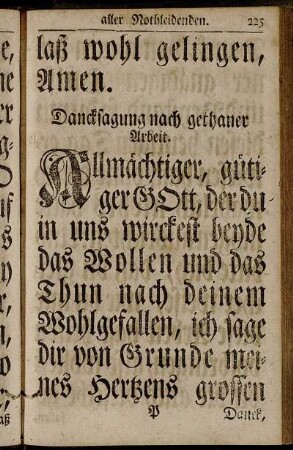 aller Nothleidenden. 225
laß wohl gelingen,
Amen.
Dancksagung nach gethaner
Arbeit.
Allmächtiger, güti-
ger GOtt, der du
in uns wirckest beyde
das Wollen und das
Thun nach deinem
Wohlgefallen, ich sage
dir von Grunde mei-
nes Hertzens grossen
P Danck,